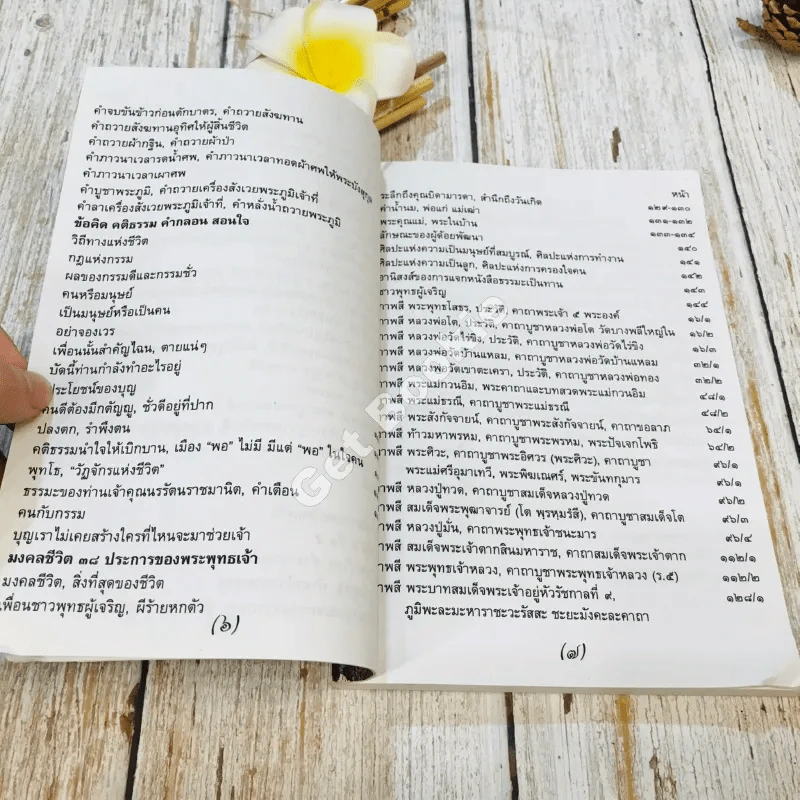 คำจบขันข้าวก่อนตักบาตร, คำถวายสังฆทาน
คำถวายสังฆทานอุทิศให้ผู้สิ้นชีวิต
คำถวายผ้ากฐิน, คำถวายผ้าป่า
คำภาวนาเวลารดน้ำศพ, คำภาวนาเวลาทอดผ้าศพให้พระบังสุกุล
คำภาวนาเวลาเผาศพ
คำบูชาพระภูมิ, คำถวายเครื่องสังเวยพระภูมิเจ้าที่
คำลาเครื่องสังเวยพระภูมิเจ้าที่, คำหลั่งน้ำถวายพระภูมิ
ข้อคิด คติธรรม คำกลอน สอนใจ
วิถีทางแห่งชีวิต
กฎแห่งกรรม
ผลของกรรมดีและกรรมชั่ว
คนหรือมนุษย์
เป็นมนุษย์หรือเป็นคน
อย่าจองเวร
เพื่อนนั้นสำคัญไฉน, ตายแน่ๆ
บัดนี้ท่านกำลังทำอะไรอยู่
ประโยชน์ของบุญ
คนดีต้องมีกตัญญู, ชั่วดีอยู่ที่ปาก
ปลงตก, รำพึงตน
คติธรรมนำใจให้เบิกบาน, เมือง "พอ" ไม่มี มีแต่ "พอ" ในใจคน
พุทโธ, "วัฏจักรแห่งชีวิต"
ธรรมะของท่านเจ้าคุณนรรัตนราชมานิต, คำเตือน
คนกับกรรม
บุญเราไม่เคยสร้างใครที่ไหนจะมาช่วยเจ้า
มงคลชีวิต ๓๘ ประการของพระพุทธเจ้า
มงคลชีวิต, สิ่งที่สุดของชีวิต
เพื่อนชาวพุทธผู้เจริญ, ผีร้ายหกตัว
(๖)
หน้า
ระลึกถึงคุณบิดามารดา, สำนึกถึงวันเกิด
ค่าน้ำนม, พ่อแก่ แม่เฒ่า ๑๒๙-๑๓๐
พระคุณแม่, พระในบ้าน ๑๓๑-๑๓๒
ลักษณะของผู้ด้อยพัฒนา ๑๓๓-๑๓๔
ศิลปะแห่งความเป็นมนุษย์ที่สมบูรณ์, ศิลปะแห่งการทำงาน ๑๔๐
ศิลปะแห่งความเป็นลูก, ศิลปะแห่งการครองใจคน ๑๔๑
อานิสงส์ของการแจกหนังสือธรรมะเป็นทาน ๑๔๒
ชาวพุทธผู้เจริญ ๑๔๓
ภาพสี พระพุทธโสธร, ประวัติ, คาถาพระเจ้า ๕ พระองค์ ๑๔๔
ภาพสี หลวงพ่อโต, ประวัติ, คาถาบูชาหลวงพ่อโต วัดบางพลีใหญ่ใน ๑๖/๑
ภาพสี หลวงพ่อวัดไร่ขิง, ประวัติ, คาถาบูชาหลวงพ่อวัดไร่ขิง ๑๖/๒
ภาพสี หลวงพ่อวัดบ้านแหลม, คาถาบูชาหลวงพ่อวัดบ้านแหลม ๑๖/๓
ภาพสี หลวงพ่อวัดเขาตะเครา, ประวัติ, คาถาบูชาหลวงพ่อทอง ๓๒/๑
ภาพสี พระแม่กวนอิม, พระคาถาและบทสวดพระแม่กวนอิม ๓๒/๒
ภาพสี พระแม่ธรณี, คาถาบูชาพระแม่ธรณี ๔๘/๑
ภาพสี พระสังกัจจายน์, คาถาบูชาพระสังกัจจายน์, คาถาขอลาภ ๔๘/๒
ภาพสี ท้าวมหาพรหม, คาถาบูชาพระพรหม, พระปัจเจกโพธิ ๖๔/๑
ภาพสี พระศิวะ, คาถาบูชาพระอิศวร (พระศิวะ), คาถาบูชา ๖๔/๒
พระแม่ศรีอุมาเทวี, พระพิฆเณศร์, พระขันทกุมาร ๙๖/๑
ภาพสี หลวงปู่ทวด, คาถาบูชาสมเด็จหลวงปู่ทวด ๙๖/๒
ภาพสี สมเด็จพระพุฒาจารย์ (โต พฺรหฺมรํสี), คาถาบูชาสมเด็จโต ๙๖/๓
ภาพสี หลวงปู่มั่น, คาถาพระพุทธเจ้าชนะมาร ๙๖/๔
ภาพสี สมเด็จพระเจ้าตากสินมหาราช, คาถาสมเด็จพระเจ้าตาก ๑๑๒/๑
ภาพสี พระพุทธเจ้าหลวง, คาถาบูชาพระพุทธเจ้าหลวง (ร.๕) ๑๑๒/๒
ภาพสี พระบาทสมเด็จพระเจ้าอยู่หัวรัชกาลที่ ๙, ๑๒๘/๑
ภูมิพะละมะหาราชะวะรัสสะ ชะยะมังคะละคาถา
(๗)